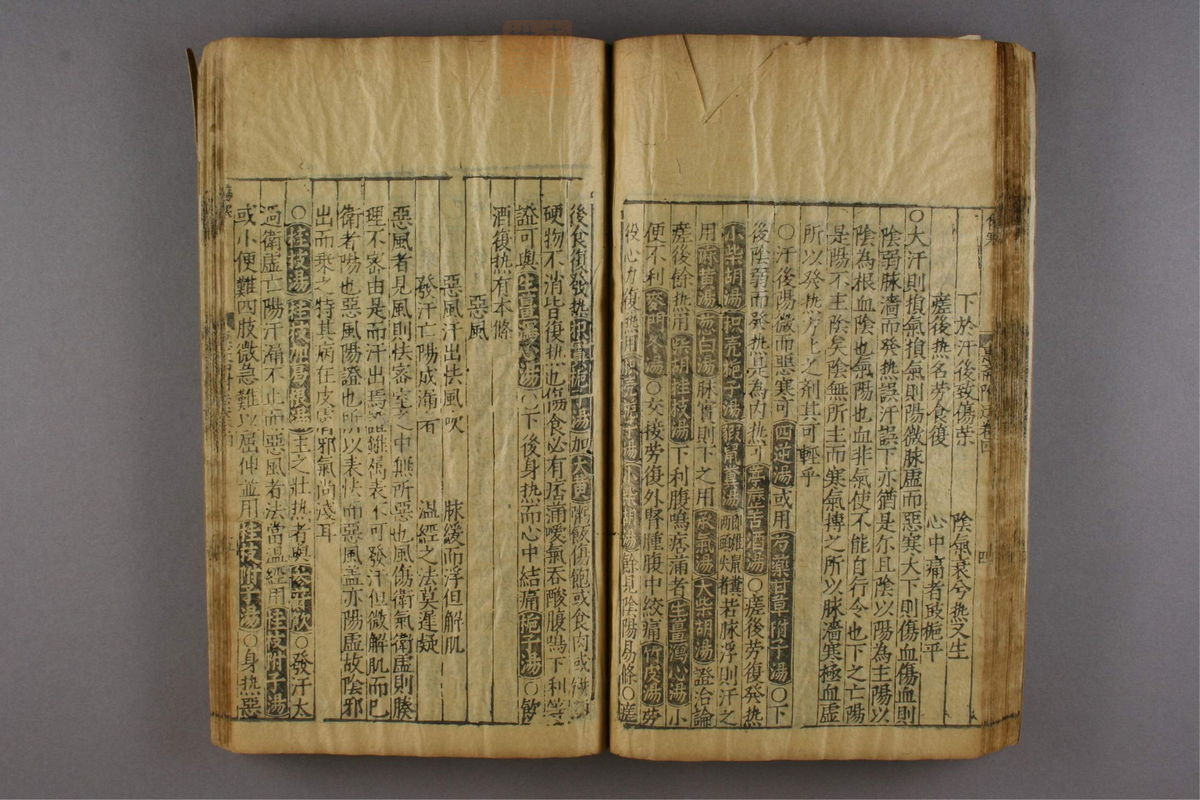 下於汗後致傷榮 陰氣衰兮热又生
瘥後热名勞食復 心中痛者豉梔平
○大汗則損氣損氣則陽微脉虛而惡寒大下則傷血傷血則
陰弱脉濇而發热誤汗誤下亦猶是尓且陰以陽為主陽以
陰為根血陰也氣陽也血非氣使不能自行令也下之亡陽
是陽不主陰矣陰無所主而寒氣搏之所以脉濇寒極血虛
所以發热方上之剤其可輕乎
○汗後陽微而惡寒可四逆湯或用芍藥甘草附子湯○下
後陰弱而發热是為内热可葶藶苦酒湯○瘥後勞復發热
小柴胡湯枳壳梔子湯猳鼠糞湯若脉浮則汗之
用麻黄湯葱白湯脉實則下之用承氣湯大柴胡湯證治論
瘥後餘热用柴胡桂枝湯下利腹鳴痞滿者生薑瀉心湯小
便不利麥門冬湯○交接勞復外腎腫腹中絞痛竹皮湯勞
役心力復热用枳壳梔子湯小柴胡湯餘見陰陽易條○瘥
後食復發热枳實梔子湯加大黄粥飯傷飽或食肉或
硬物不消皆復热也傷食必有痞滿噯氣吞酸腹鳴下利等
證可與生薑瀉心湯○下後身热而心中結痛梔子湯○飲
酒復热有本條
惡風
惡風汗出怯風吹 脉緩而浮但解肌
發汗亡陽成漏者 温經之法莫遲疑
惡風者見風則怯密室之中無所惡也風傷衛氣衛虛則腠
理不密由是而汗出焉證雖属表不可發汗但微解肌而已
衛者陽也惡風陽證也所以表怯而惡風盖亦陽虛故陰邪
出而乘之特其病在皮膚邪氣尚淺耳
○桂枝湯桂枝加葛根湯主之壮热者與參蘇飲○發汗太
過衛虛亡陽汗漏不止而惡風者法當温經用桂枝附子湯
或小便難四肢微急難以屈伸並用桂枝附子湯○身热惡